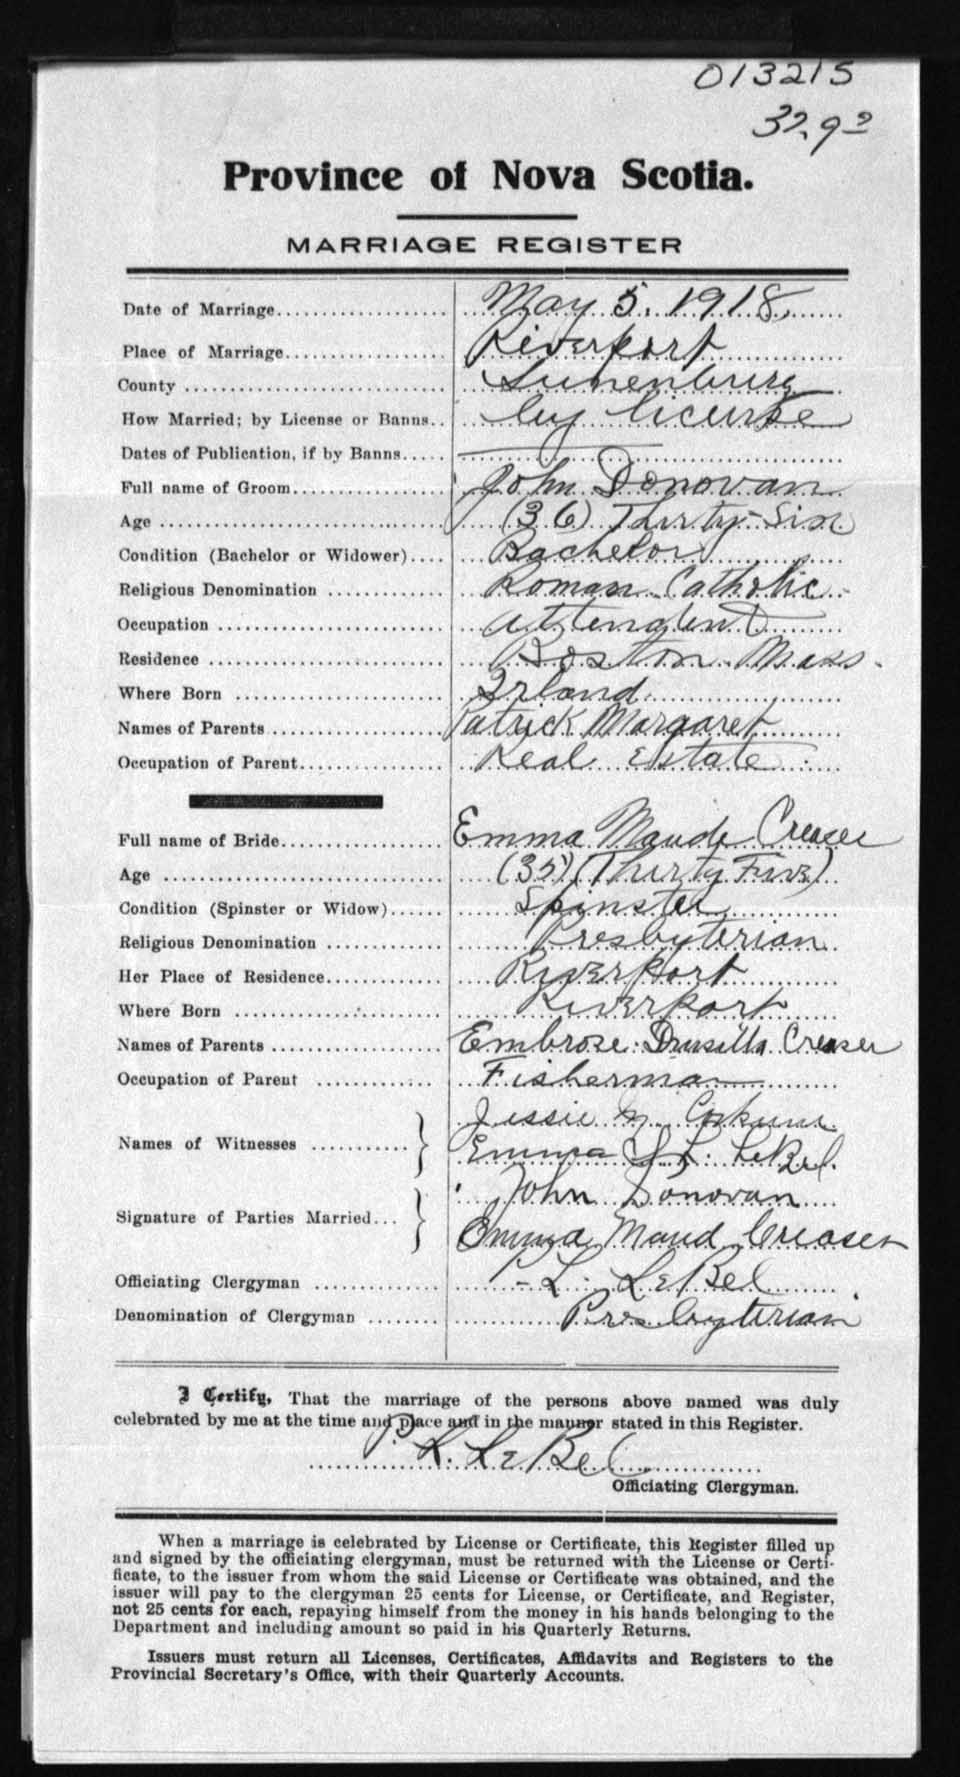 013215
Province of Nova Scotia.
MARRIAGE REGISTER
Date of Marriage May 5. 1918,
Place of Marriage Riverport
County Lunenburg
How Married; by License or Banns by license
Dates of Publication, if by Banns
Full name of Groom John Donovan
Age (36) Thirty-Six
Condition (Bachelor or Widower) Bachelor
Religious Denomination Roman Catholic
Occupation attendent
Residence Boston Mass.
Where Born Irland
Names of Parents Patrick Margaret
Occupation of Parent Real Estate
Full name of Bride Emma Maude Creaser
Age (35) (Thirty Five)
Condition (Spinster or Widow) Spinster
Religious Denomination Presbyterian
Her Place of Residence Riverport
Where Born Riverport
Names of Parents Embrose Drusilla Creaser
Occupation of Parent Fisherman
Names of Witnesses Jessie M Corkum
Emma L. LeBel.
Signature of Parties Married John Donovan
Emma Maud Creaser
Officiating Clergyman P. L. LeBel
Denomination of Clergyman Presbyterian
I Certify, That the marriage of the persons above named was duly
celebrated by me at the time and place and in the manner stated in this Register.
P. L. LeBel
Officiating Clergyman.
When a marriage is celebrated by License or Certificate, this Register filled up
and signed by the officiating clergyman, must be returned with the License or Certi-
ficate, to the issuer from whom the said License or Certificate was obtained, and the
issuer will pay to the clergyman 25 cents for License, or Certificate, and Register,
not 25 cents for each, repaying himself from the money in his hands belonging to the
Department and including amount so paid in his Quarterly Returns.
Issuers must return all Licenses, Certificates, Affidavits and Registers to the
Provincial Secretary's Office, with their Quarterly Accounts.